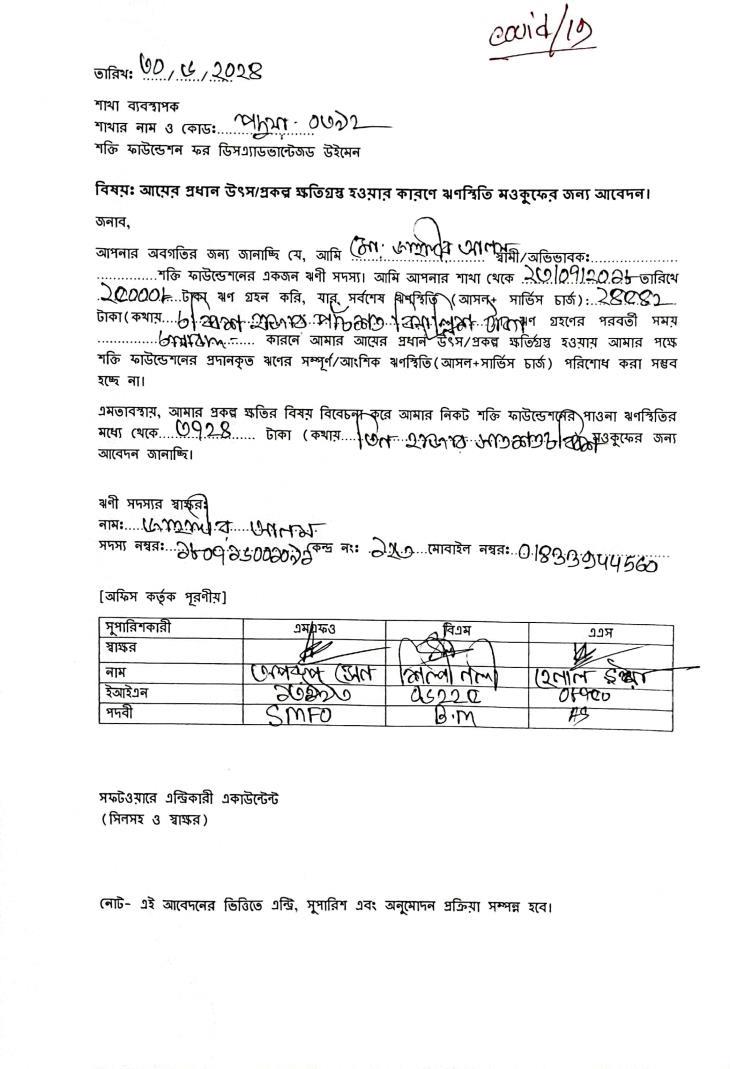 covid/19
তারিখ: ৩০/৬/২০২৪
শাখা ব্যবস্থাপক
শাখার নাম ও কোড: পদুয়া - ০৩৯২
শক্তি ফাউন্ডেশন ফর ডিসএ্যাডভান্টেজড উইমেন
বিষয়: আয়ের প্রধান উৎস/প্রকল্প ক্ষতিগ্রস্থ হওয়ার কারণে ঋণস্থিতি মওকুফের জন্য আবেদন।
জনাব,
আপনার অবগতির জন্য জানাচ্ছি যে, আমি মো. জাহাঙ্গীর আলম স্বামী/অভিভাবক:
শক্তি ফাউন্ডেশনের একজন ঋণী সদস্য। আমি আপনার শাখা থেকে তারিখে
টাকা ঋণ গ্রহন করি, যার সর্বশেষ ঋণস্থিতি (আসল+ সার্ভিস চার্জ):
টাকা(কথায় হাজার পাঁচশত টাকা ঋণ গ্রহণের পরবর্তী সময়
কারনে আমার আয়ের প্রধান উৎস/প্রকল্প ক্ষতিগ্রস্থ হওয়ায় আমার পক্ষে
শক্তি ফাউন্ডেশনের প্রদানকৃত ঋণের সম্পূর্ণ/আংশিক ঋণস্থিতি(আসল+সার্ভিস চার্জ) পরিশোধ করা সম্ভব
হচ্ছে না।
এমতাবস্থায়, আমার প্রকল্প ক্ষতির বিষয় বিবেচনা করে আমার নিকট শক্তি ফাউন্ডেশনের পাওনা ঋণস্থিতির
মধ্যে থেকে ৩৭২৪ টাকা (কথায় তিন হাজার সাতশত চব্বিশ মওকুফের জন্য
আবেদন জানাচ্ছি।
ঋণী সদস্যর স্বাক্ষর:
নাম: জাহাঙ্গীর আলম
সদস্য নম্বর: কেন্দ্র নং: মোবাইল নম্বর:
[অফিস কর্তৃক পূরণীয়]
সুপারিশকারী এমএফও বিএম এএস
স্বাক্ষর
নাম অপরূপ সেন শিল্পী হেলাল
ইআইএন
পদবী SMFO B.M AS
সফটওয়ারে এন্ট্রিকারী একাউন্টেন্ট
(সিলসহ ও স্বাক্ষর)
নোট- এই আবেদনের ভিত্তিতে এন্ট্রি, সুপারিশ এবং অনুমোদন প্রক্রিয়া সম্পন্ন হবে।